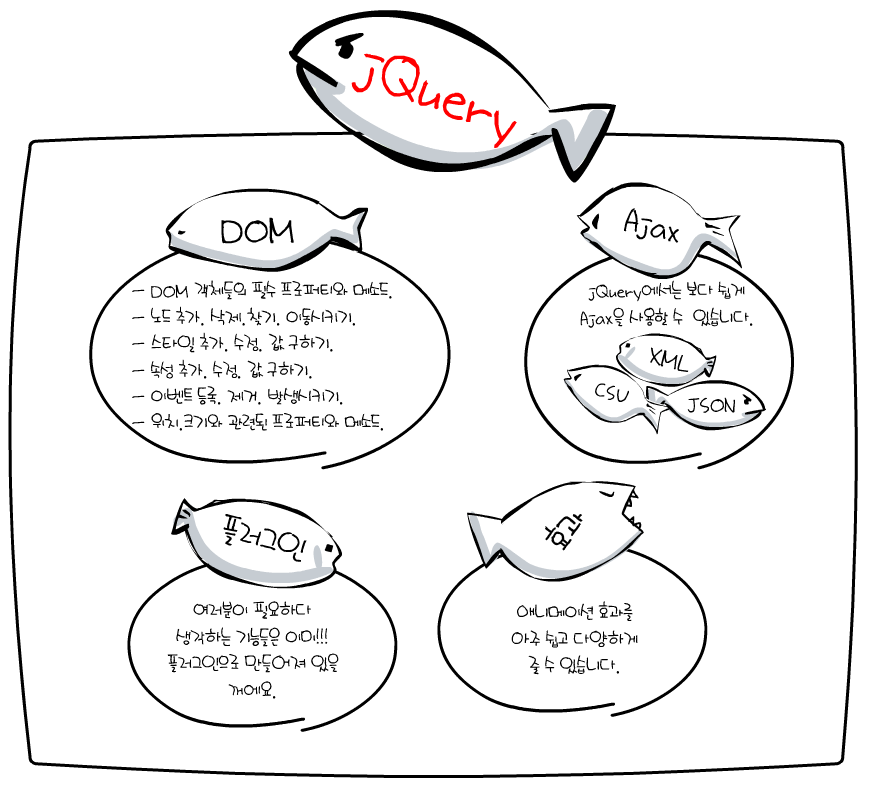 jQuery
DOM
- DOM 객체들의 필수 프로퍼티와 메소드.
- 노드 추가, 삭제, 찾기, 이동시키기.
- 스타일 추가, 수정, 값 구하기.
- 속성 추가, 수정, 값 구하기.
- 이벤트 등록, 제거, 발생시키기.
- 위치,크기와 관련된 프로퍼티와 메소드.
Ajax
jQuery에서는 보다 쉽게
Ajax을 사용할 수 있습니다.
XML
CSU
JSON
플러그인
여러분이 필요하다
생각하는 기능들은 이미!!!
플러그인으로 만들어져 있을
꺼에요.
효과
애니메이션 효과를
아주 쉽고 다양하게
줄 수 있습니다.